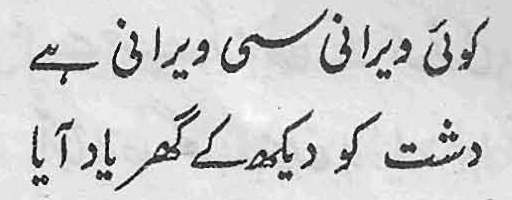 کوئی ویرانی سی ویرانی ہے
دشت کو دیکھ کے گھر یاد آیا